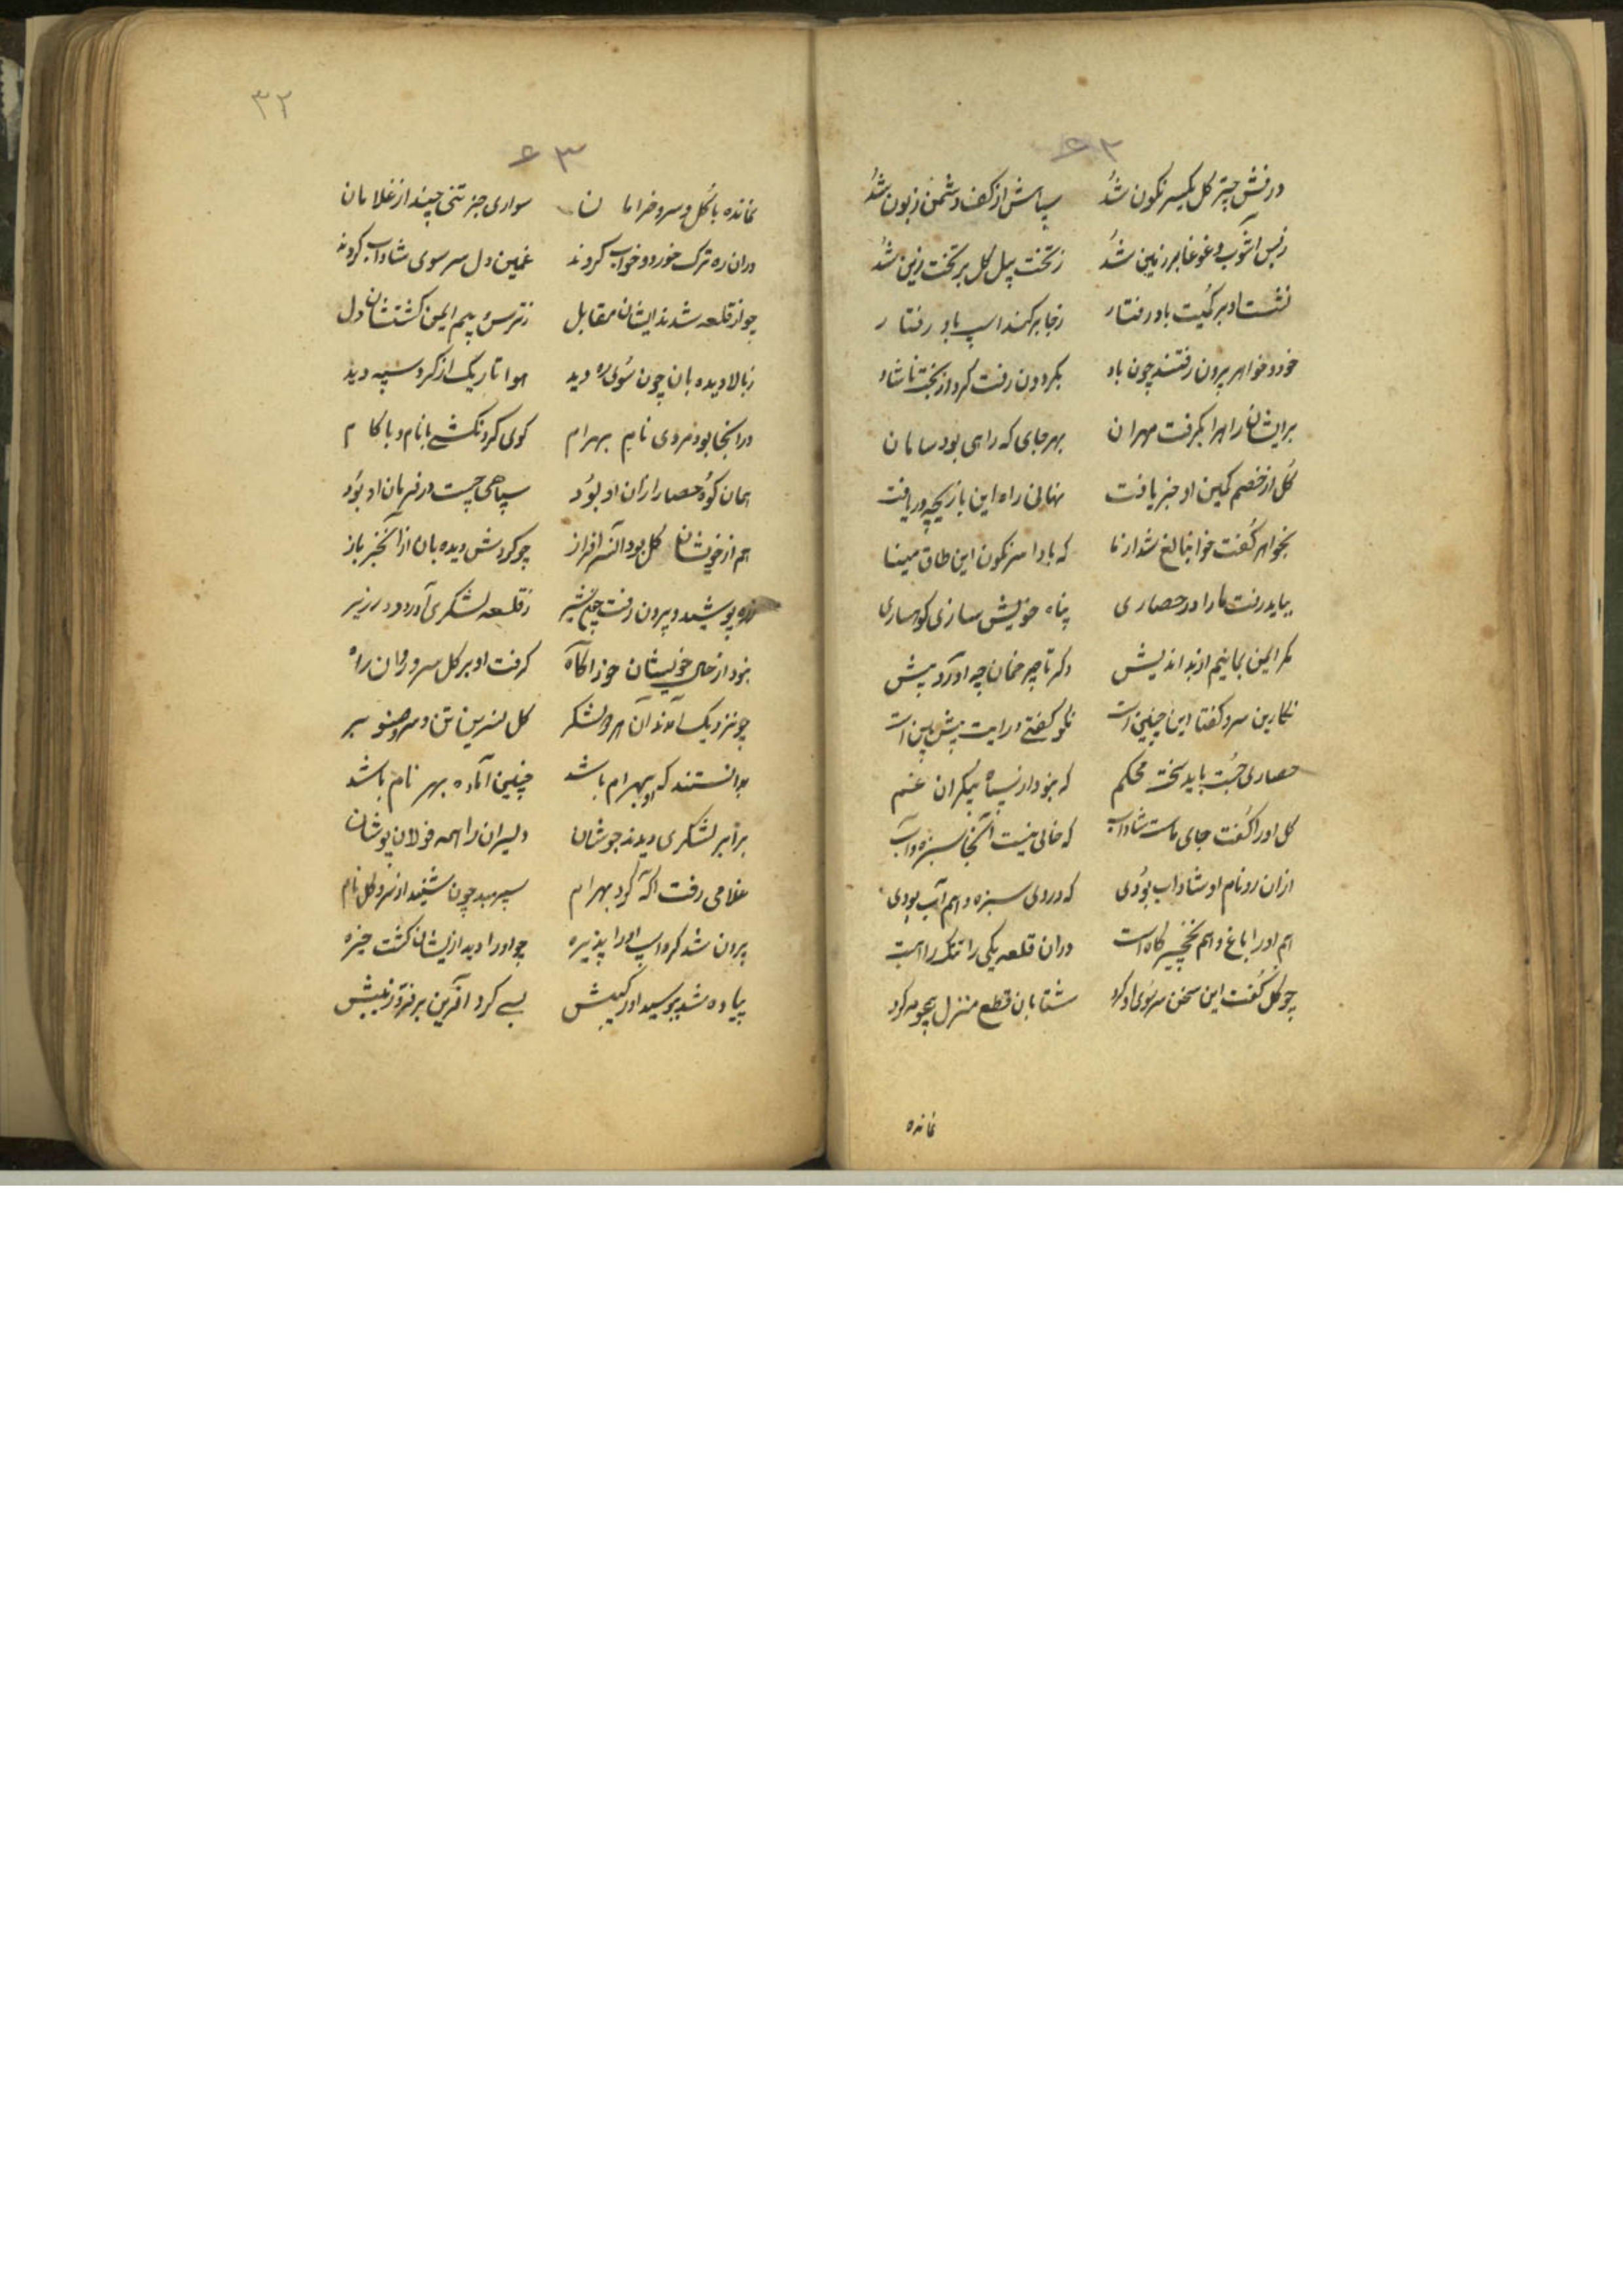 ۶۳
درفش چتر گل یکسر نگون شد سپاهش از کف دشمن زبون شد
زبس آشوب و غوغا بر زمین شد ز تخت پیل گل بر تخت زین شد
نشست او بر کمیت باد رفتار ز جا برکند اسپ باد رفتار
خود و خواهر برون رفتند چون باد بگردون رفت گرد از بخت ناشاد
بر ایشان راهها بگرفت مهران بهر جای که راهی بود سامان
گل از خصم کمین او خبر یافت نهانی راه این بازیچه دریافت
بخواهر گفت خوا شد ار ما که بادا سرنگون این طاق مینا
بباید رفت ما را در حصاری پناه خویش سازی کوهساری
مگر ایمن بمانیم از بد اندیش دگر تا چرخمان چه آورد پیش
نگارین سرو گفتا این چنین است نکو گفتی و رایت پیش بین است
حصاری جست باید سخت محکم که نبود از سپاه بیکران غم
گل او را گفت جای ماست شاداب که خالی نیست آنجا سبزه و آب
ازان رو نام او شاداب بودی که در وی سبزه و هم آب بودی
هم او را باغ و هم نخچیر گاه است دران قلعه یکی را تنگ راهست
چو گل گفت این سخن سر سوی او کرد شتابان قطع منزل همچو مه کرد
نمانده
۳۲
۶۳
نمانده با گل و سرو خرامانـ نا سواری جز تنی چند از غلامان
دران ره ترک خورد و خواب کردند غمین دل سر سوی شاداب کردند
چو از قلعه شدند ایشان مقابل ز ترس و بیم ایمن گشتشان دل
ز بالا دیده بان چون سوی ره دید هوا تاریک از گرد سپه دید
در آنجا بود مردی نام بهرام گوی گردنکشی با نام و با کام
همان کوه حصار از آن او بود سپاهی چست در فرمان او بود
هم از خویشان گل بود آن سرافراز چو کردش دیده بان از آن خبر باز
زره پوشید و بیرون رفت چون شیر ز قلعه لشکری آورد در زیر
نبود از حال خویشان خود آگاه گرفت او بر گل و سرو روان راه
چو نزدیک آمدند آن هر دو لشکر گل نسرین تن و سرو صنوبر
بدانستند کو بهرام باشد چنین آماده بهر نام باشد
برابر لشکری دیدند جوشان دلیران را همه فولاد پوشان
غلامی رفت آگه کرد بهرام سپهبد چون شنید از سرو و گل نام
برون شد کرد اسپ او را پذیره چو او را دید از ایشان گشت خیره
پیاده شد ببوسید او رکیبش بسی کرد آفرین بر فر و زیبش